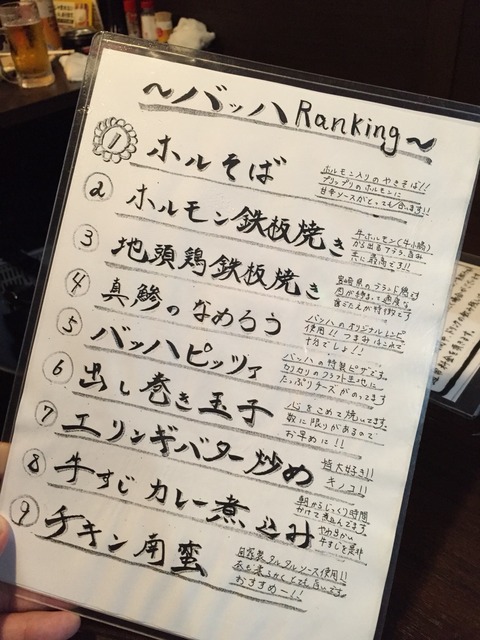 〜バッハRanking〜
1 ホルそば
ホルモン入りのやきそば!!
プリップリのホルモンに
甘辛ソースがとっても合います!!
2 ホルモン鉄板焼き
牛ホルモン(牛小腸)
から出るアブラ、旨み
共に最高です!!
3 地頭鶏鉄板焼き
宮崎県のブランド鶏です
肉が締まって適度な
歯ごたえが特徴です
4 真鯵のなめろう
バッハのオリジナルレシピ
使用!! つまみはこ
十分でしょ!!
5 バッハピッツァ
バッハの特製ピザです。
カリカリのクラフト生地に
たっぷりチーズがのってます
6 出し巻き玉子
心をこめて焼いてます。
数に限りがあるので
お早めに!!
7 エリンギバター炒め
皆大好き!!
キノコ!!
8 牛すじカレー煮込み
朝からじっくり時間
かけて煮込んでます
やわらかい
牛すじを是非
9 チキン南蛮
自家製タルタルソース使用!!
衣も柔らかくとても旨いです
おすすめー!!